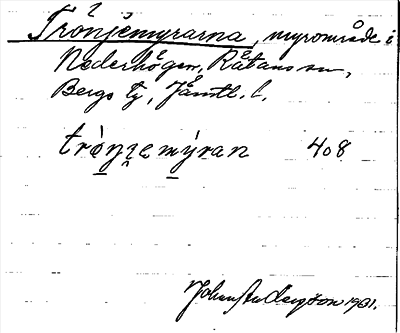 Trönjemyrarna, myrområde i
Nederhögen, Råtans sn,
Bergs tg, Jämtl. l.
tròṇı̯emýran 408
Johan Anderzon 1931.